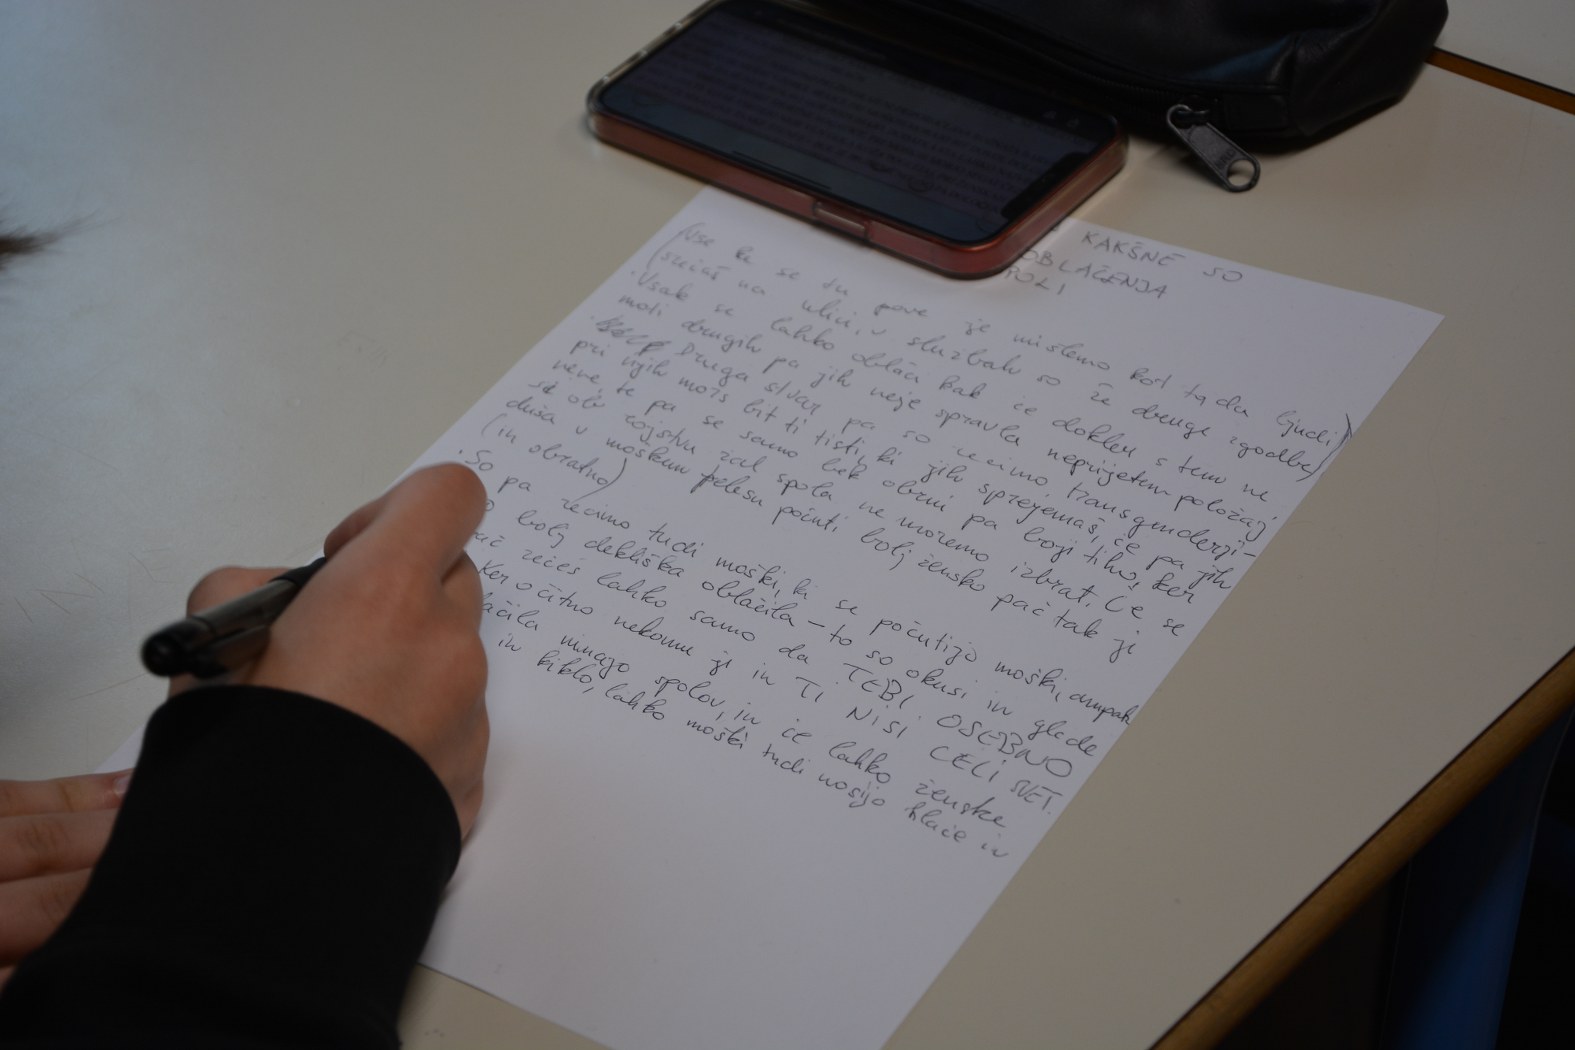 KAKŠNE SO
OBLAČENJA
POLI
(Vse ke se tu pove je mišleno kot tq da ljudi
srečaš na ulici, v službah so že druge zgodbe)
. Vsak se lahko oblači kak če dokler s tem ne
moti drugih pa jih neje spravla neprijeten položaj.
. Druga stvar pa so recimo transgenderji-
pri njih moš bit ti tisti, ki jih sprejemaš, če pa jih
neve, te pa se samo lek obrni pa bojdi tiho, ker
se ob rojstvu žal spola ne moremo izbrat. Če se
duša v moškem telesu počuti bolj žensko pač tak je
(in obratno)
. So pa recimo tudi moški, ki se počutijo moški, ampak
bolj dekliška oblačila – to so okusi in glede
rečeš lahko samo da TEBI OSEBNO
Ker očitno nekomu je in TI NISI CELI SVET.
lačila nimajo spolov, in če lahko ženske
in kiklo, lahko moški tudi nosijo hlače in